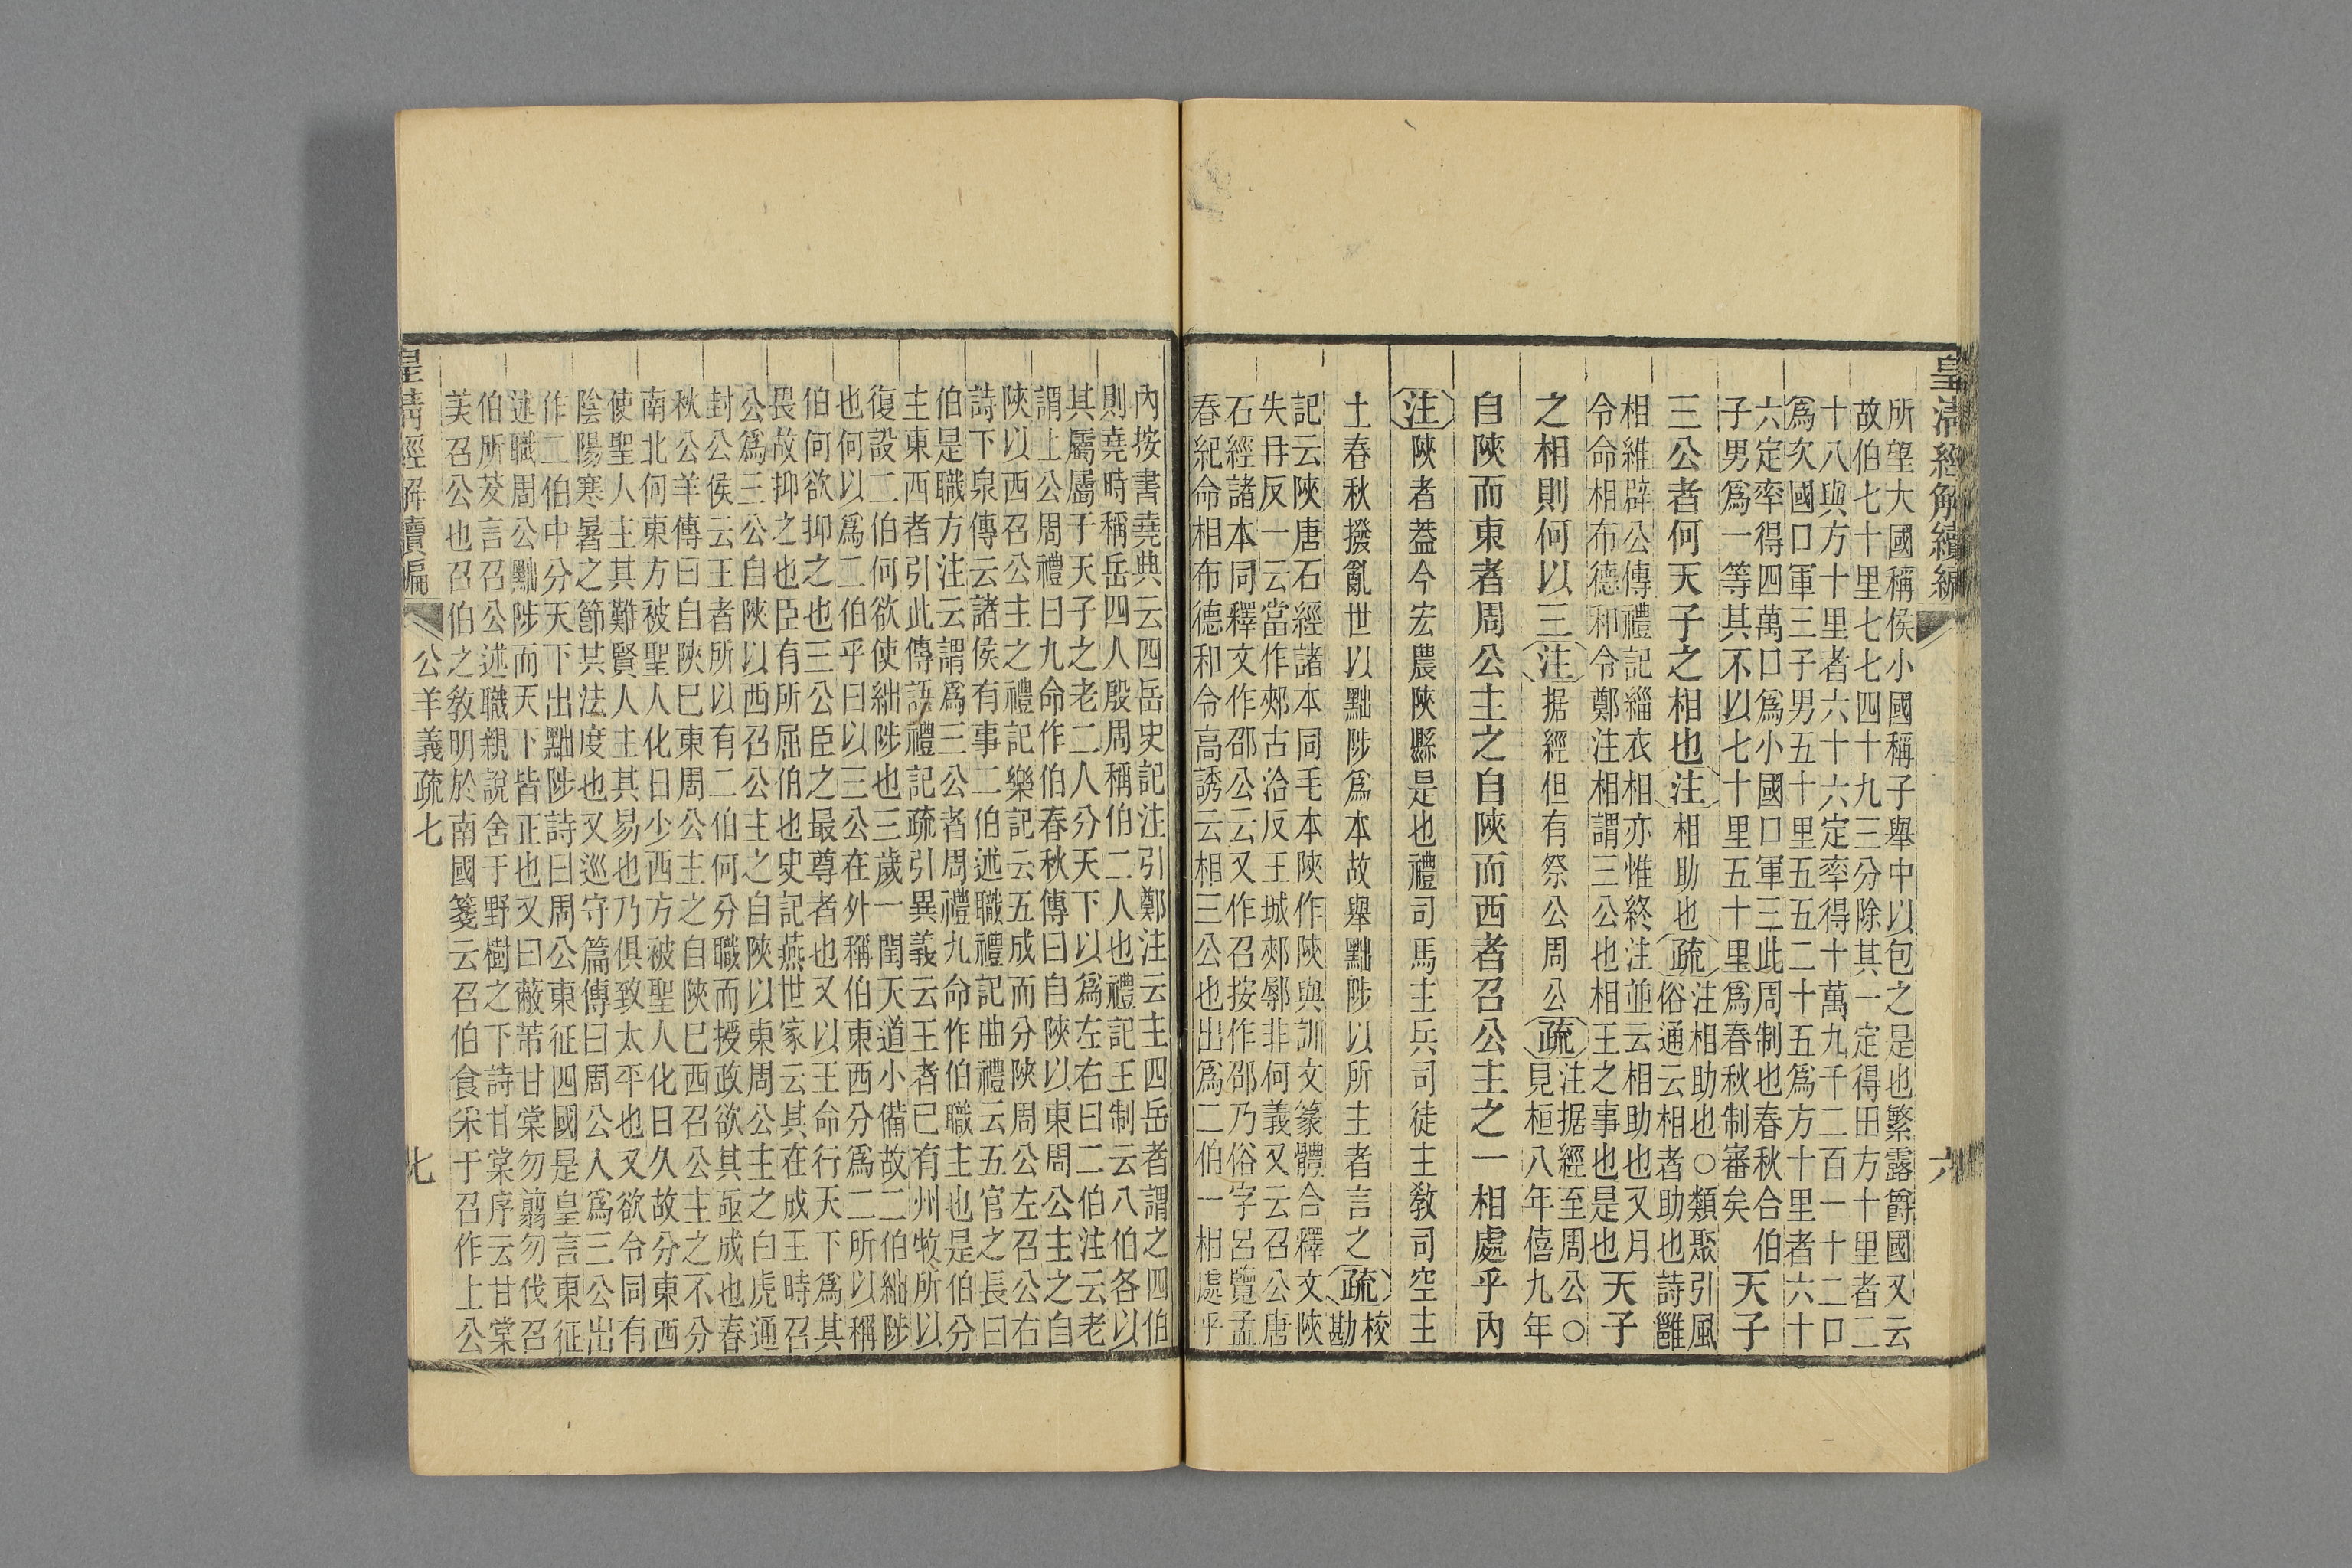 皇清經解續編
六
所望大國稱侯小國稱子舉中以包之是也繁露爵國又云
故伯七十里七七四十九三分除其一定得田方十里者二
十八與方十里者六十六定率得十萬九千二百一十二口
爲次國口軍三子男五十里五五二十五爲方十里者六十
六定率得四萬口爲小國口軍三此周制也春秋合伯
子男爲一等其不以七十里五十里爲春秋制審矣
天子
三公者何天子之相也注相助也疏
注相助也○類聚引風
俗通云相者助也詩雝
相維辟公傳禮記緇衣相亦惟終注並云相助也又月
令命相布德和令鄭注相謂三公也相王之事也是也
天子
之相則何以三注据經但有祭公周公疏
注据經至周公○
見桓八年僖九年
自陝而東者周公主之自陝而西者召公主之一相處乎內
注陝者蓋今宏農陝縣是也禮司馬主兵司徒主敎司空主
土春秋撥亂世以黜陟爲本故舉黜陟以所主者言之疏校勘
記云陝唐石經諸本同毛本陝作陜與訓文篆體合釋文陝
失冉反一云當作郟古洽反王城郟鄏非何義又云召公唐
石經諸本同釋文作邵公云又作召按作邵乃俗字呂覽孟
春紀命相布德和令高誘云相三公也出爲二伯一相處乎
內按書堯典云四岳史記注引鄭注云主四岳者謂之四伯
則堯時稱岳四人殷周稱伯二人也禮記王制云八伯各以
其屬屬于天子之老二人分天下以爲左右曰二伯注云老
謂上公周禮曰九命作伯春秋傳曰自陝以東周公主之自
陝以西召公主之禮記樂記云五成而分陝周公左召公右
詩下泉傳云諸侯有事二伯述職禮記曲禮云五官之長曰
伯是職方注云謂爲三公者周禮九命作伯職主也是伯分
主東西者引此傳語禮記疏引異義云王者已有州牧所以
復設二伯何欲使絀陟也三歲一閏天道小備故二伯絀陟
也何以爲二伯乎曰以三公在外稱伯東西分爲二所以稱
伯何欲抑之也三公臣之最尊者也又以王命行天下爲其
畏故抑之也臣有所屈伯也史記燕世家云其在成王時召
公爲三公自陝以西召公主之自陝以東周公主之白虎通
封公侯云王者所以有二伯何分職而授政欲其亟成也春
秋公羊傳曰自陝已東周公主之自陝已西召公主之不分
南北何東方被聖人化日少西方被聖人化日久故分東西
使聖人主其難賢人主其易也乃俱致太平也又欲令同有
陰陽寒暑之節共法度也又巡守篇傳曰周公入爲三公出
作二伯中分天下出黜陟詩曰周公東征四國是皇言東征
述職周公黜陟而天下皆正也又曰蔽芾甘棠勿翦勿伐召
伯所茇言召公述職親說舍于野樹之下詩甘棠序云甘棠
美召公也召伯之敎明於南國箋云召伯食采于召作上公
皇清經解續編
公羊義疏七
七